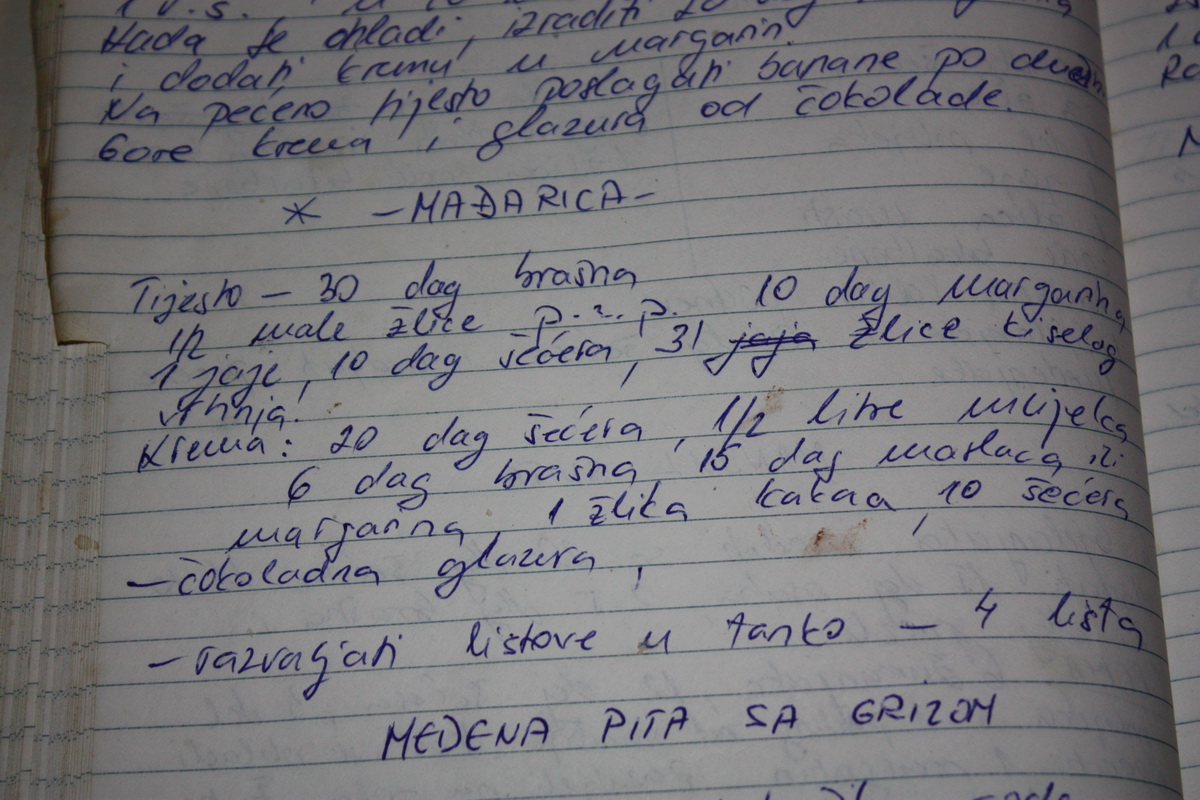 1 v.s.
Kada se ohladi, izraditi 20 dag
i dodati kremu u margarin.
Na pečeno tijesto poslagati banane po dužini
Gore krema i glazura od čokolade.
* – MAĐARICA –
Tijesto – 30 dag brašna 10 dag margarina
1/2 male žlice p.z.p.
1 jaje, 10 dag šećera, 31 jaja žlice kiselog
vrhnja.
Krema: 20 dag šećera, 1/2 litre mlijeka
6 dag brašna 15 dag maslaca ili
margarina, 1 žlica kakaa, 10 šećera
– čokoladna glazura,
– razvaljati listove u tanko – 4 lista
MEDENA PITA SA GRIZOM